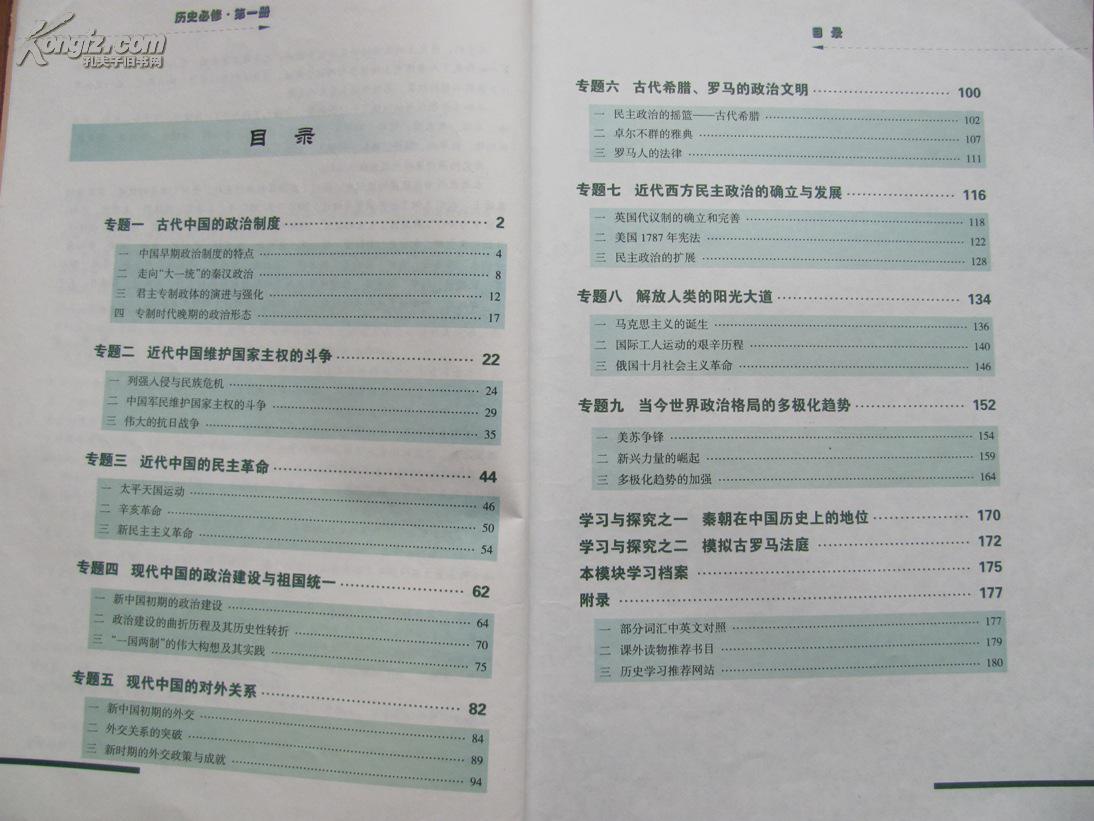 历史必修·第一册
Kongfz.com
孔夫子旧书网
目 录
专题一 古代中国的政治制度 2
一 中国早期政治制度的特点 4
二 走向“大一统”的秦汉政治 8
三 君主专制政体的演进与强化 12
四 专制时代晚期的政治形态 17
专题二 近代中国维护国家主权的斗争 22
一 列强入侵与民族危机 24
二 中国军民维护国家主权的斗争 29
三 伟大的抗日战争 35
专题三 近代中国的民主革命 44
一 太平天国运动 46
二 辛亥革命 50
三 新民主主义革命 54
专题四 现代中国的政治建设与祖国统一 62
一 新中国初期的政治建设 64
二 政治建设的曲折历程及其历史性转折 70
三 “一国两制”的伟大构想及其实践 75
专题五 现代中国的对外关系 82
一 新中国初期的外交 84
二 外交关系的突破 89
三 新时期的外交政策与成就 94
目 录
专题六 古代希腊、罗马的政治文明 100
一 民主政治的摇篮——古代希腊 102
二 卓尔不群的雅典 107
三 罗马人的法律 111
专题七 近代西方民主政治的确立与发展 116
一 英国代议制的确立和完善 118
二 美国1787年宪法 122
三 民主政治的扩展 128
专题八 解放人类的阳光大道 134
一 马克思主义的诞生 136
二 国际工人运动的艰辛历程 140
三 俄国十月社会主义革命 146
专题九 当今世界政治格局的多极化趋势 152
一 美苏争锋 154
二 新兴力量的崛起 159
三 多极化趋势的加强 164
学习与探究之一 秦朝在中国历史上的地位 170
学习与探究之二 模拟古罗马法庭 172
本模块学习档案 175
附录 177
一 部分词汇中英文对照 177
二 课外读物推荐书目 179
三 历史学习推荐网站 180